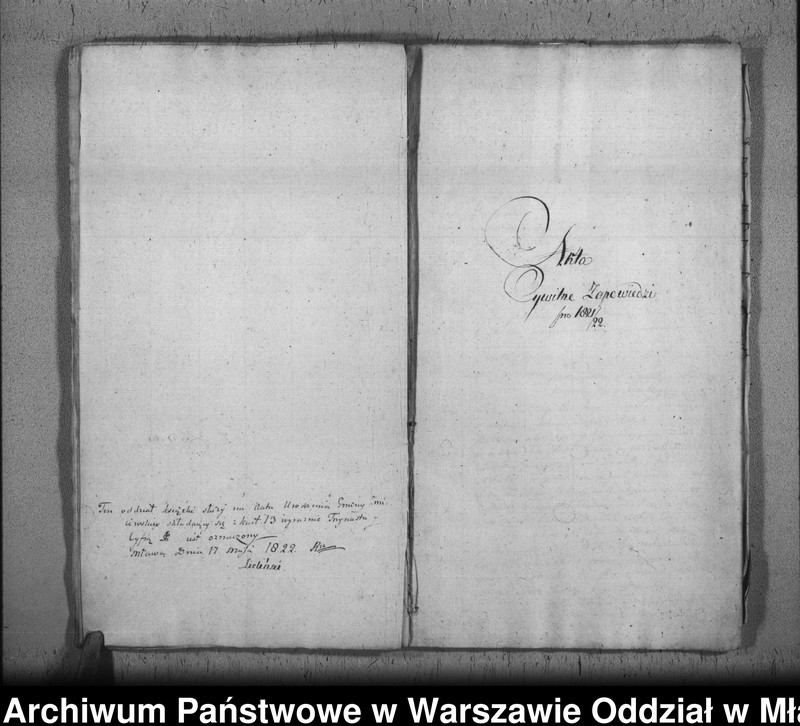 Ten oddział książki służy na Akta Urodzenia Gminy
składający się z kart 13 wyraźnie Trzynastu
Cyfrą iest oznaczony
Mława Dnia 17 Maja 1822.
Akta
Cywilne Zapowiedzi
pro 1821/22.
Archiwum Państwowe w Warszawie Oddział w Mła